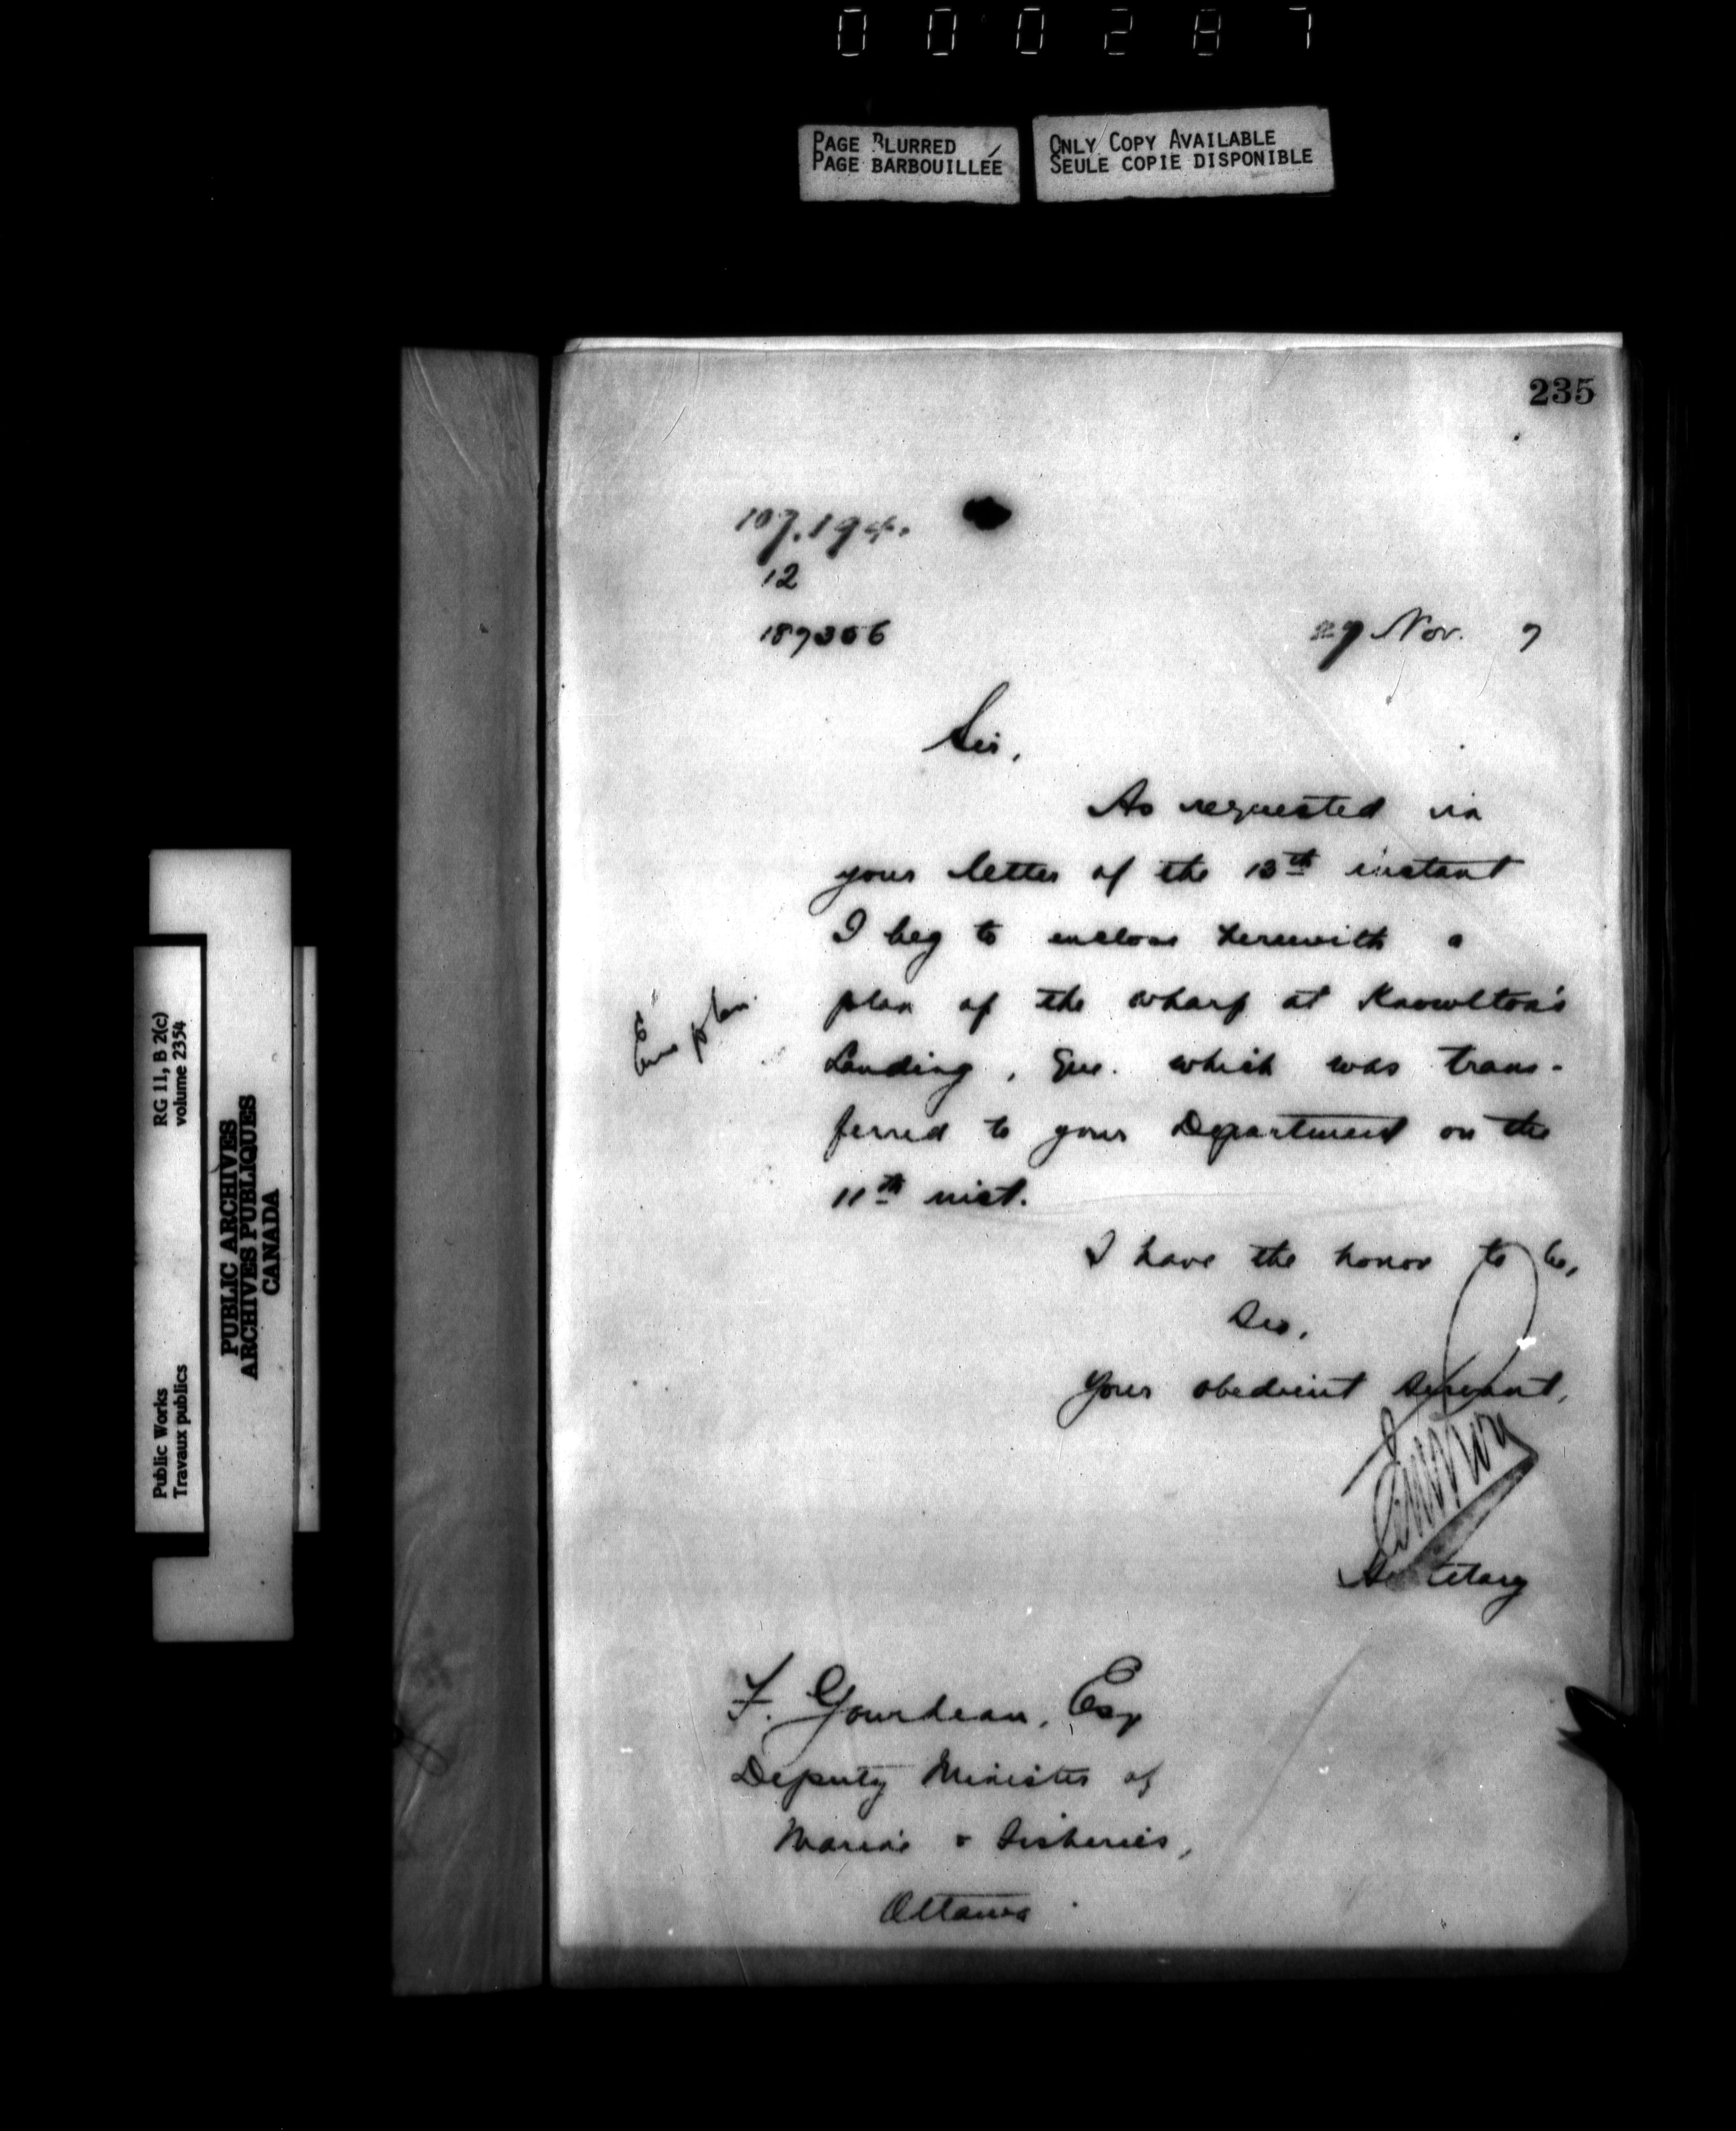 000287
PAGE BLURRED
PAGE BARBOUILLÉE
ONLY COPY AVAILABLE
SEULE COPIE DISPONIBLE
235
107.194.
12
187356
27 Nov. 7
Sir,
As requested in
your letter of the 13th instant
I beg to enclose herewith a
plan of the wharf at Knowlton's
Landing, Que. which was trans-
ferred to your Department on the
11th inst.
plan
I have the honor to be,
Sir,
Your obedient servant,
Secretary
F. Gourdeau, Esq
Deputy Minister of
Marine & Fisheries,
Ottawa
RG 11, B 2(c)
volume 2354
Public Works
Travaux publics
PUBLIC ARCHIVES
ARCHIVES PUBLIQUES
CANADA